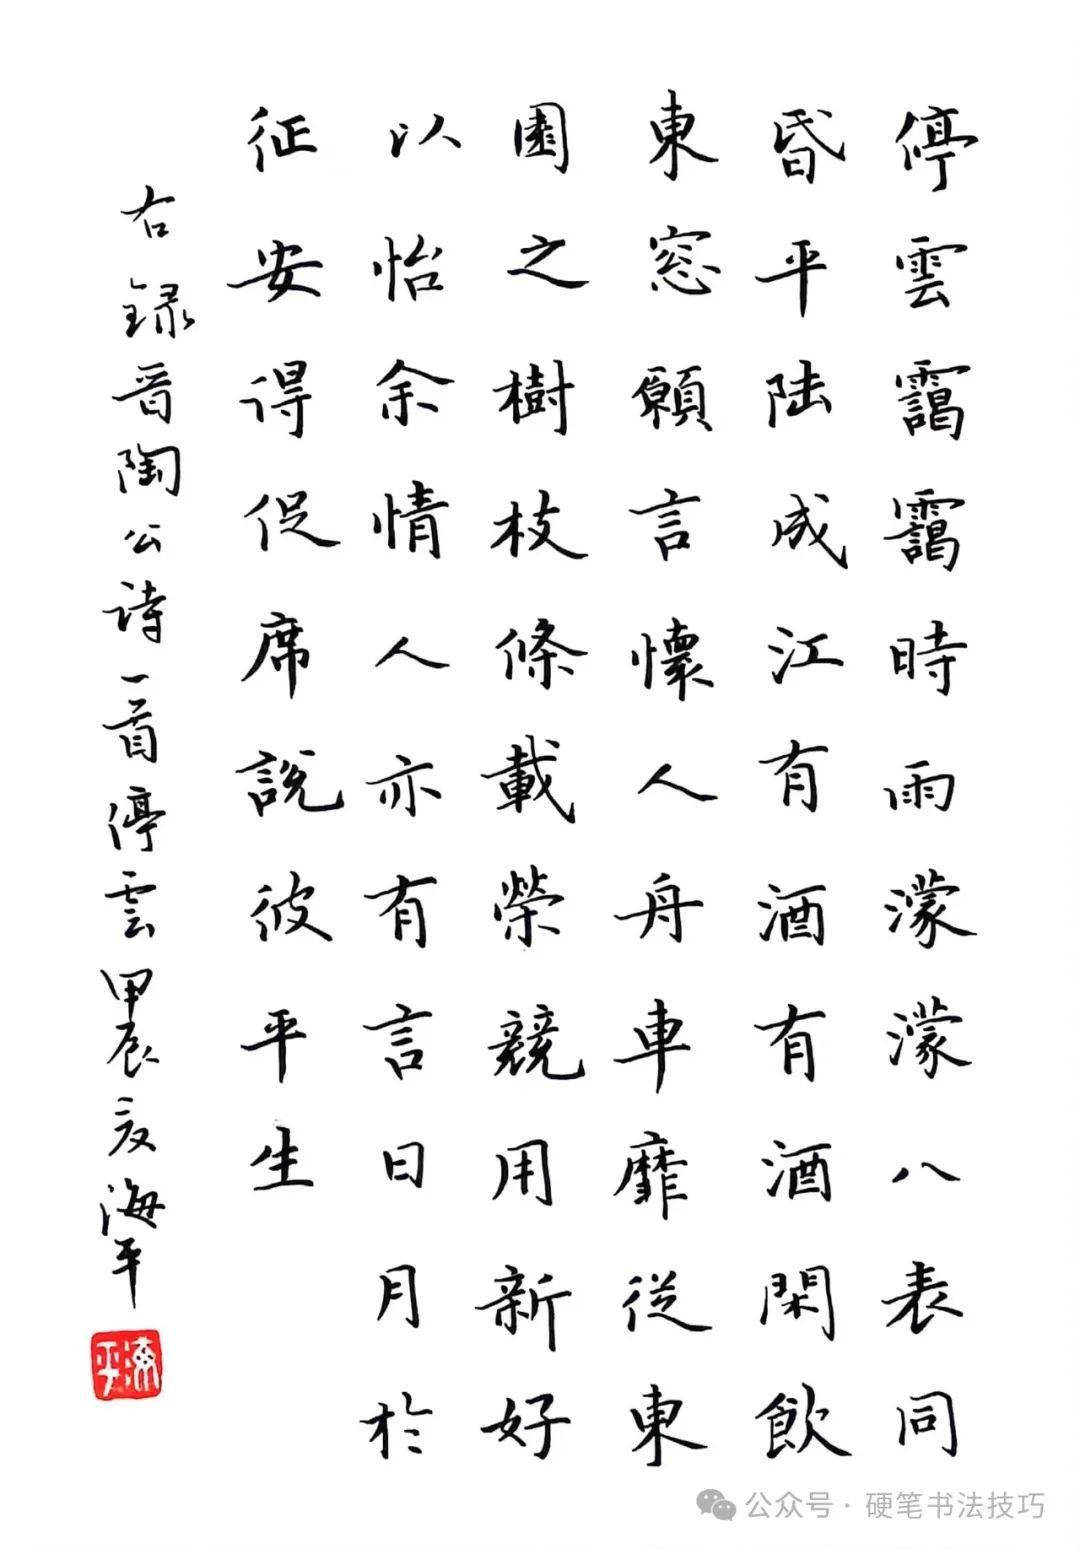 停雲靄靄時雨濛濛八表同
昏平陆成江有酒有酒閑飲
東窓願言懷人舟車靡從東
園之樹枝條載榮競用新好
以怡余情人亦有言日月於
征安得促席説彼平生
右録晋陶公诗一首停雲甲辰夏海平
海平
公众号·硬笔书法技巧